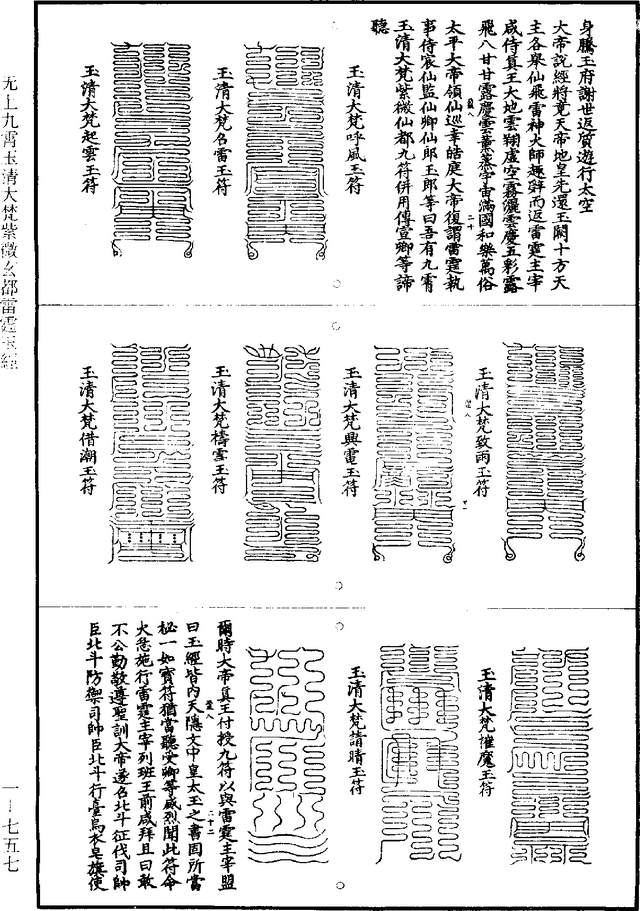 身騰玉府謝世返質遊行太空
大帝說經將竟天帝地皇先還玉闕十方天
主各舉仙飛雷神大師趨辭而返雷霆主宰
咸侍真王大地雲翔盧空霧灑雲慶五彩露
飛八甘甘露慶雲薰蒸宇宙滿國和樂萬俗
太平大帝領仙巡幸皓庭大帝復謂雷霆執
事侍宸仙監仙卿仙郎玉郎等曰吾有九霄
玉清大梵紫微仙都九符併用傳宣卿等諦
聽
玉清大梵呼風玉符
玉清大梵召雷玉符
玉清大梵起雲玉符
玉清大梵致雨玉符
玉清大梵興電玉符
玉清大梵禱雪玉符
玉清大梵借潮玉符
玉清大梵摧魔玉符
玉清大梵請晴玉符
爾時大帝真王付授九符以與雷霆主宰盟
曰玉經皆內天隱文中皇太玉之書固所當
秘一如寶符猶當聽受卿等威烈聞此符命
大悉施行雷霆主宰列班王前咸拜且曰敢
不公勤敬遵聖訓大帝遂召北斗征伐司帥
臣北斗防禦司帥臣北斗行臺烏衣皂旗使
无上九霄玉清大梵紫微玄都雷霆玉經
一—七五七